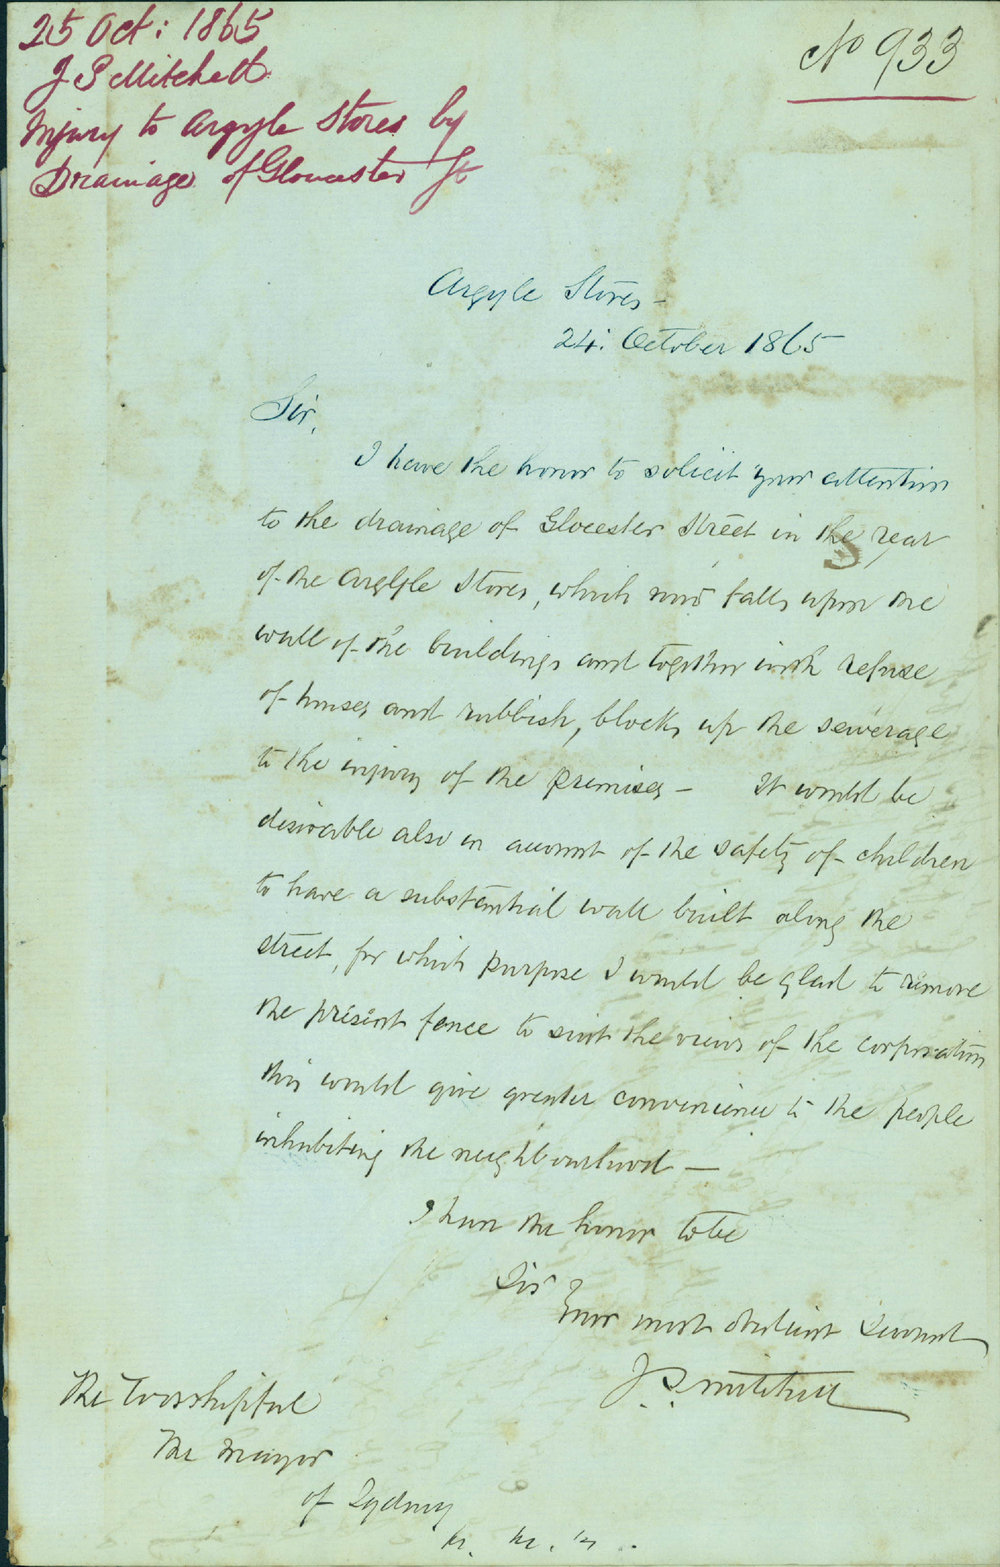 25 Oct: 1865
J S Mitchell
Injury to Argyle Stores by
Drainage of Gloucester St
No 933
Argyle Stores –
24: October 1865
Sir,
I have the honor to solicit your attention
to the drainage of Glocester Street in the rear
of the Argyle Stores, which now falls upon the
wall of the buildings and together with refuse
of houses and rubbish, blocks up the sewerage
to the injury of the premises – It would be
desirable also on account of the safety of children
to have a substantial wall built along the
street, for which purpose I would be glad to remove
the present fence to suit the views of the corporation
this would give greater convenience to the people
inhabiting the neighbourhood —
I have the honor to be
Sir
Your most obedient Servant
J. S. Mitchell
The Worshipful
The Mayor
of Sydney